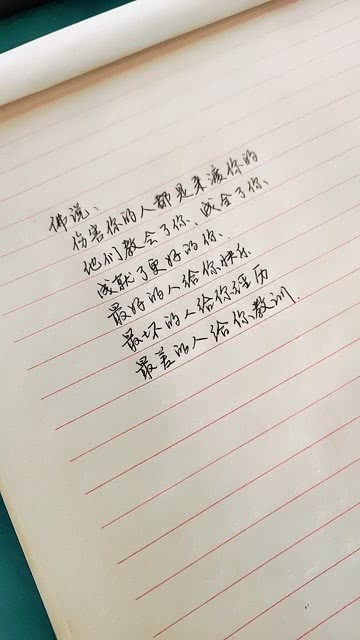 佛说、
伤害你的人都是来渡你的
他们教会了你、成全了你、
成就了更好的你、
最好的人给你快乐
最坏的人给你经历
最差的人给你教训.